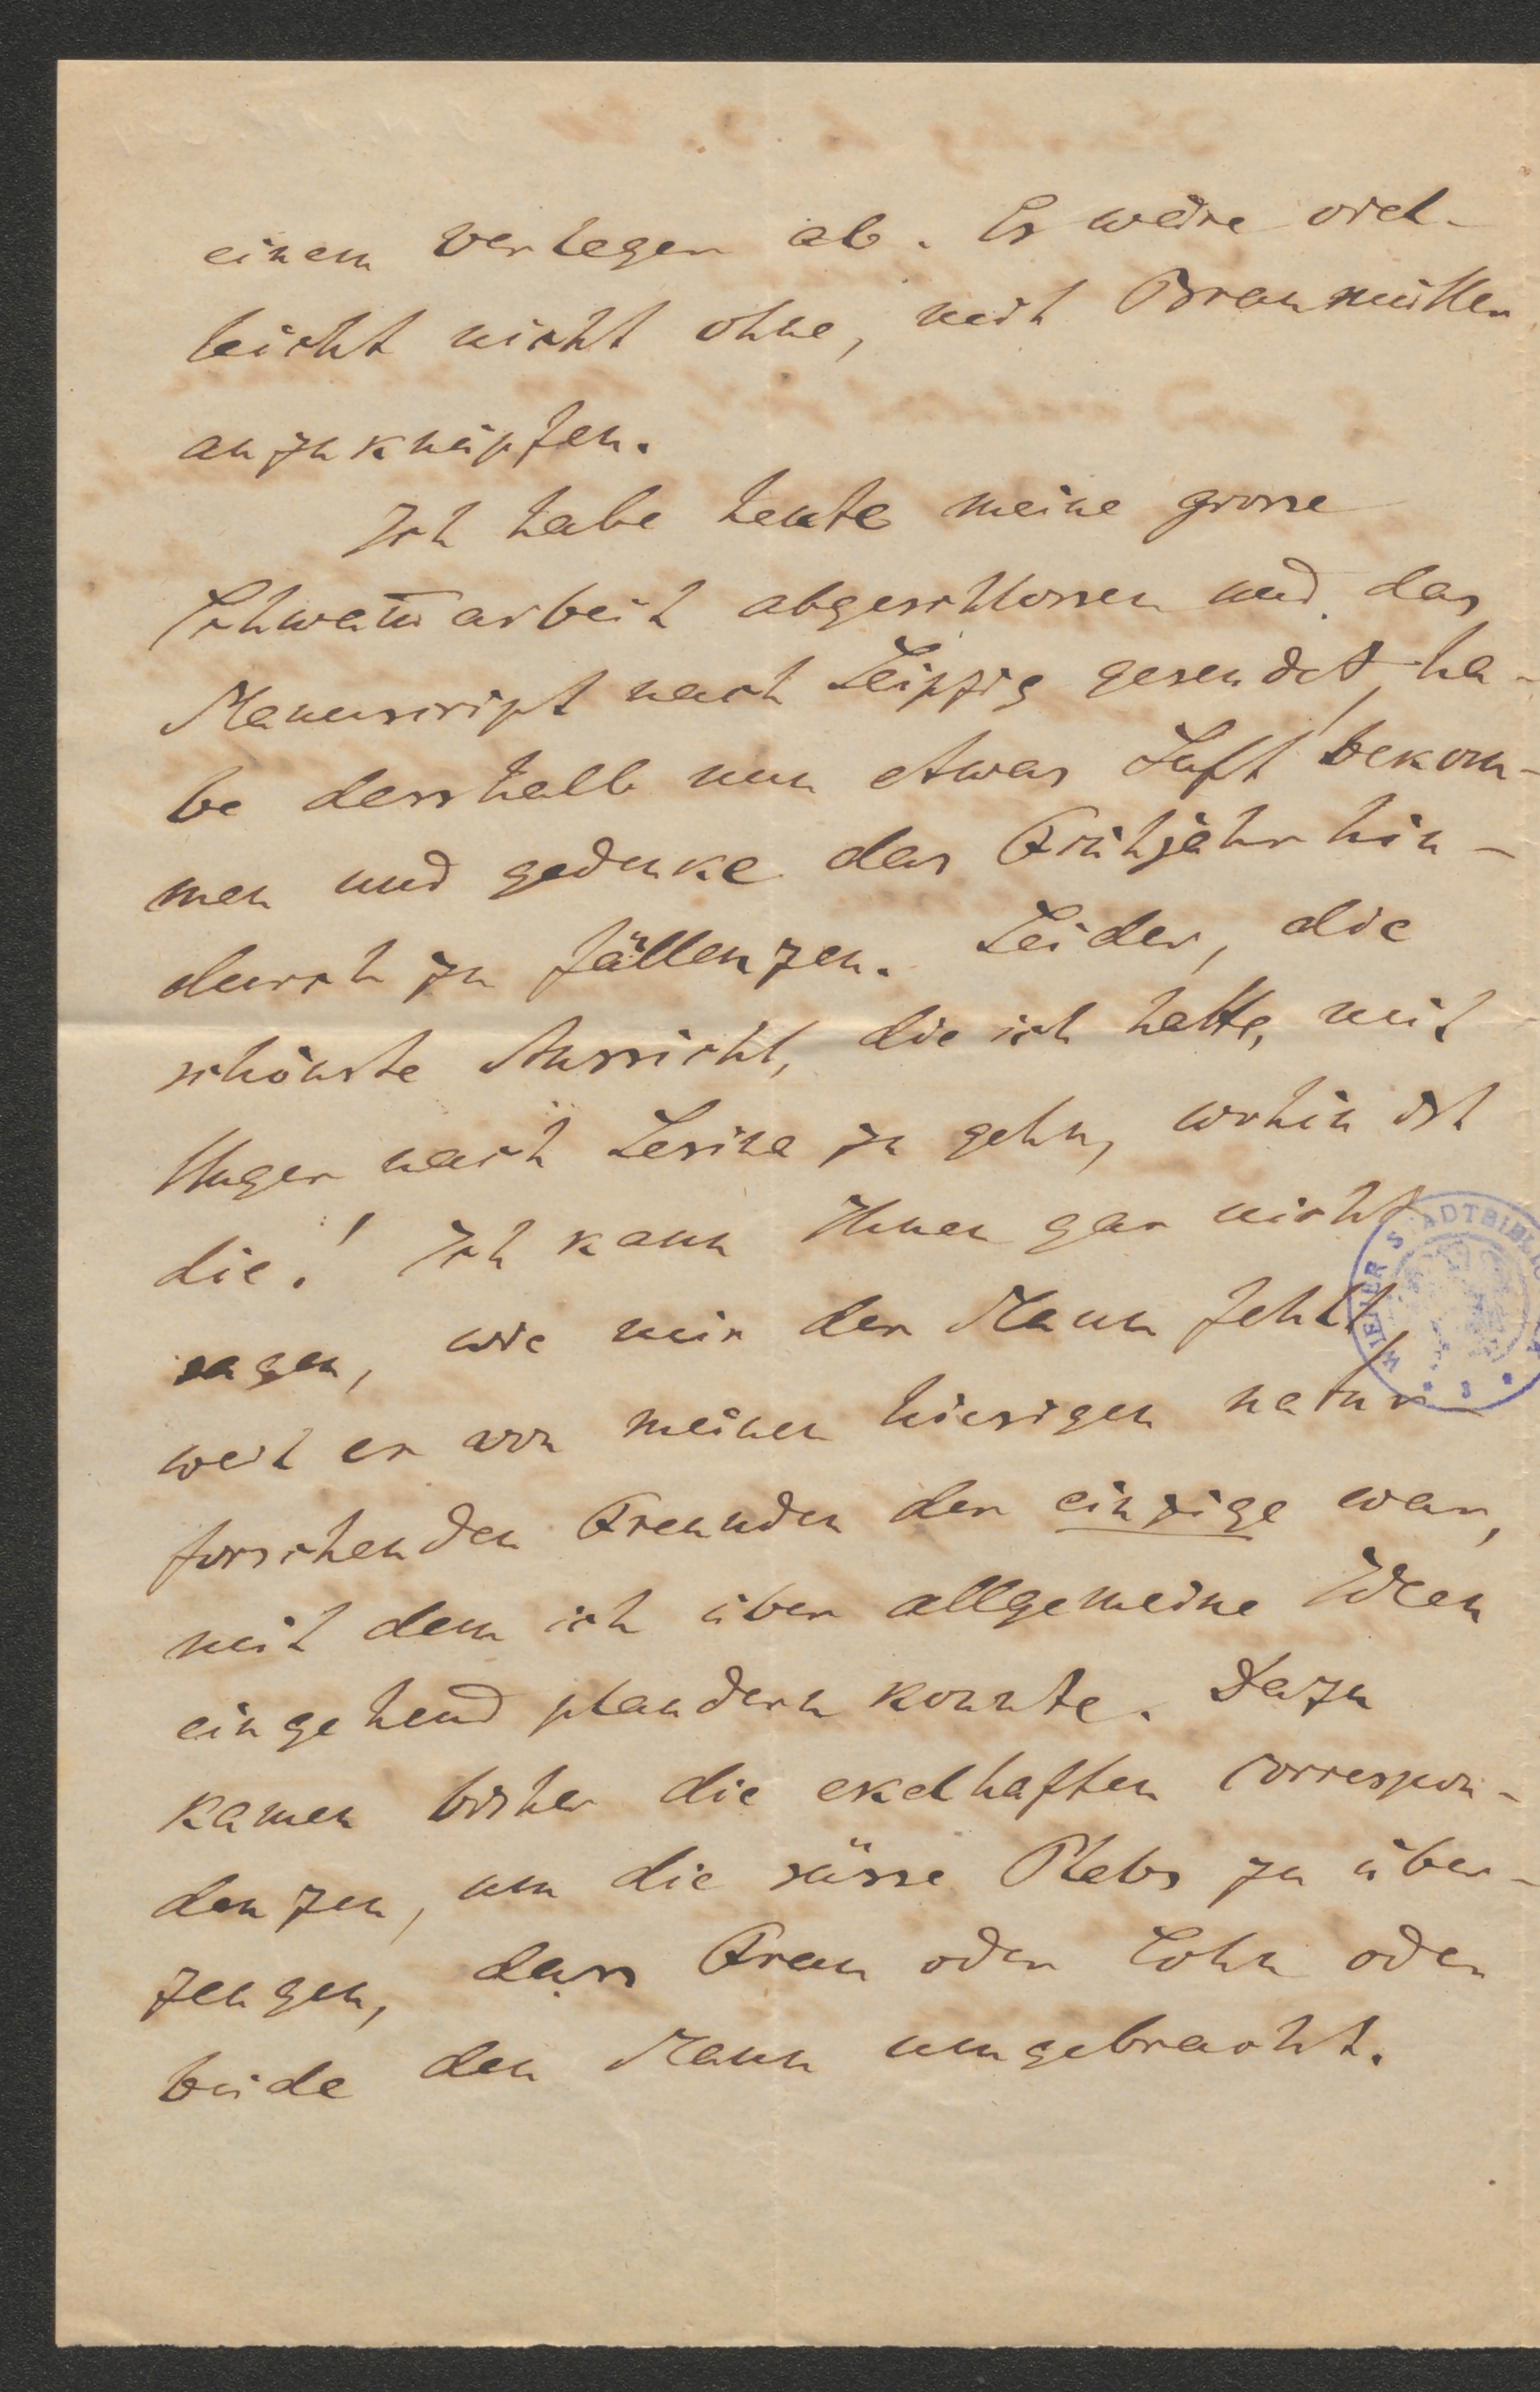 einem Verleger ab. Es wäre viel-
leicht nicht ohne, mit Braumüller
anzuknüpfen.
Ich habe heute meine grosse
Schwam̅arbeit abgeschlossen und das
Manuscript nach Leipzig gesendet, ha-
be desshalb nun etwas Luft bekom-
men und gedenke das Frühjahr hin-
durch zu fällenzen. Leider, die
schönste Aussicht, die ich hatte, mit
Unger nach Lesina zu gehn, wohin ist
die! Ich kann Ihnen gar nicht
sagen, wie mir der Mann fehlt,
weil er von meinen hiesigen natur-
forschenden Freunden der einzige war,
mit dem ich über allgemeine Ideen
eingehend plaudern konnte. Dazu
kamen bisher die ekelhaften Correspon-
denzen, um die süsse Plebs zu über-
zeugen, dass Frau oder Sohn oder
beide den Mann umgebracht.
WIENER STADTBIBLIO